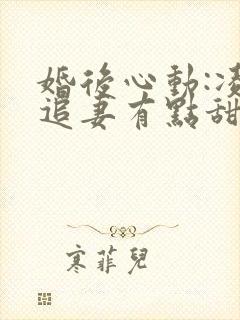 婚後心動:凌
追妻有點甜
寒菲兒